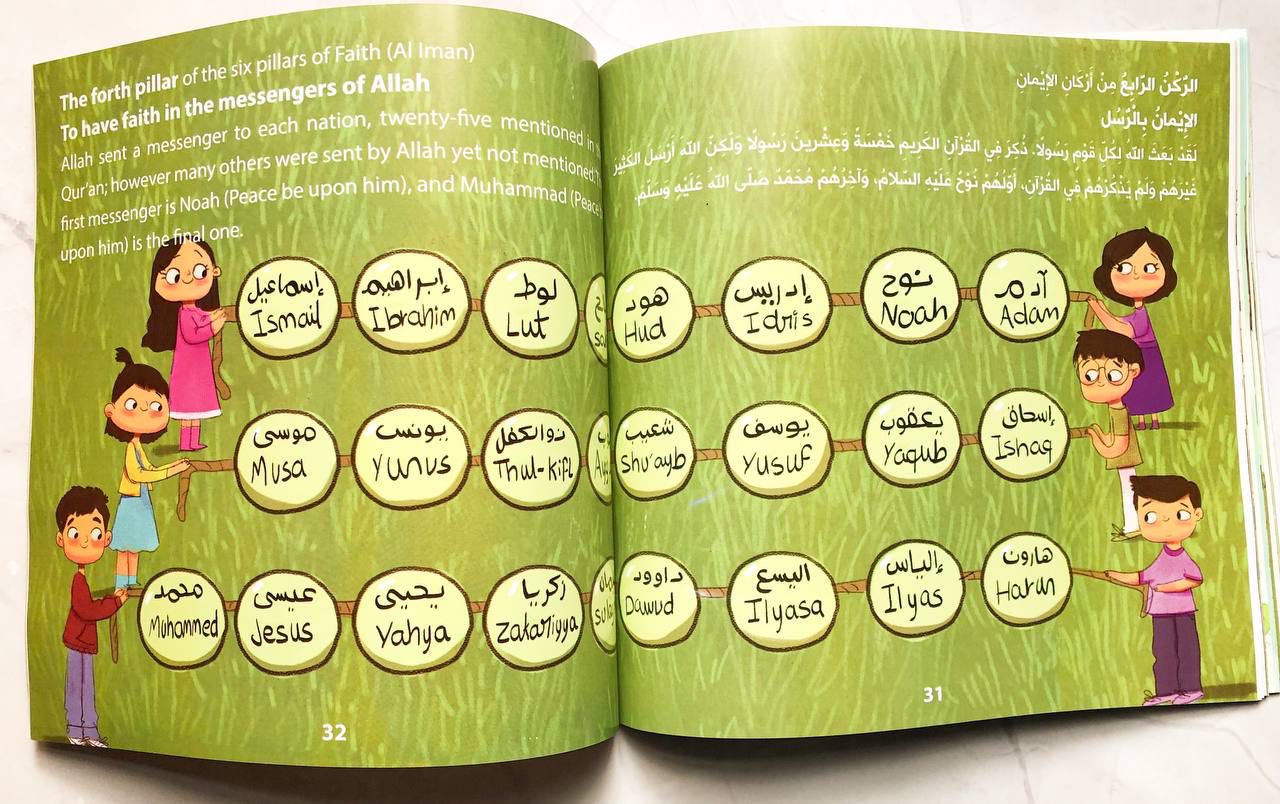 The forth pillar of the six pillars of Faith (Al Iman)
To have faith in the messengers of Allah
Allah sent a messenger to each nation, twenty-five mentioned in
Qur'an; however many others were sent by Allah yet not mentioned.
first messenger is Noah (Peace be upon him), and Muhammad (Peace
upon him) is the final one.
إسماعيل
Ismail
إبراهيم
Ibrahim
لوط
Lut
موسى
Musa
يونس
Yunus
ذوالكفل
Thul-kifl
محمد
Muhammed
عيسى
Jesus
يحيى
Yahya
زكريا
Zakariyya
32
الرُّكْنُ الرّابِعُ مِنْ أَرْكَانِ الإِيْمَانِ
الإِيْمَانُ بِالْرُّسُل
لَقَدْ بَعَثَ اللّه لِكُلِّ قَوْمٍ رَسُولًا. ذُكِرَ فِي القُرْآنِ الكَرِيمِ خَمْسَةٌ وَعِشْرِينَ رَسُولًا وَلَكِنَّ اللّه أَرْسَلَ الكَثِيرَ
غَيْرَهُمْ وَلَمْ يَذْكُرْهُمْ في القُرْآنِ، أَوّلُهُمْ نُوْحٌ عَلَيْهِ السّلَامُ، وَآخِرُهُمْ مُحَمّدٌ صَلّى اللّهُ عَلَيْهِ وَسَلّم.
آدم
Adam
نوح
Noah
إدريس
Idris
هود
Hud
إسحاق
Ishaq
يعقوب
Yaqub
يوسف
Yusuf
شعيب
Shu'ayb
هارون
Harun
إلياس
Ilyas
اليسع
Ilyasa
داوود
Dawud
31